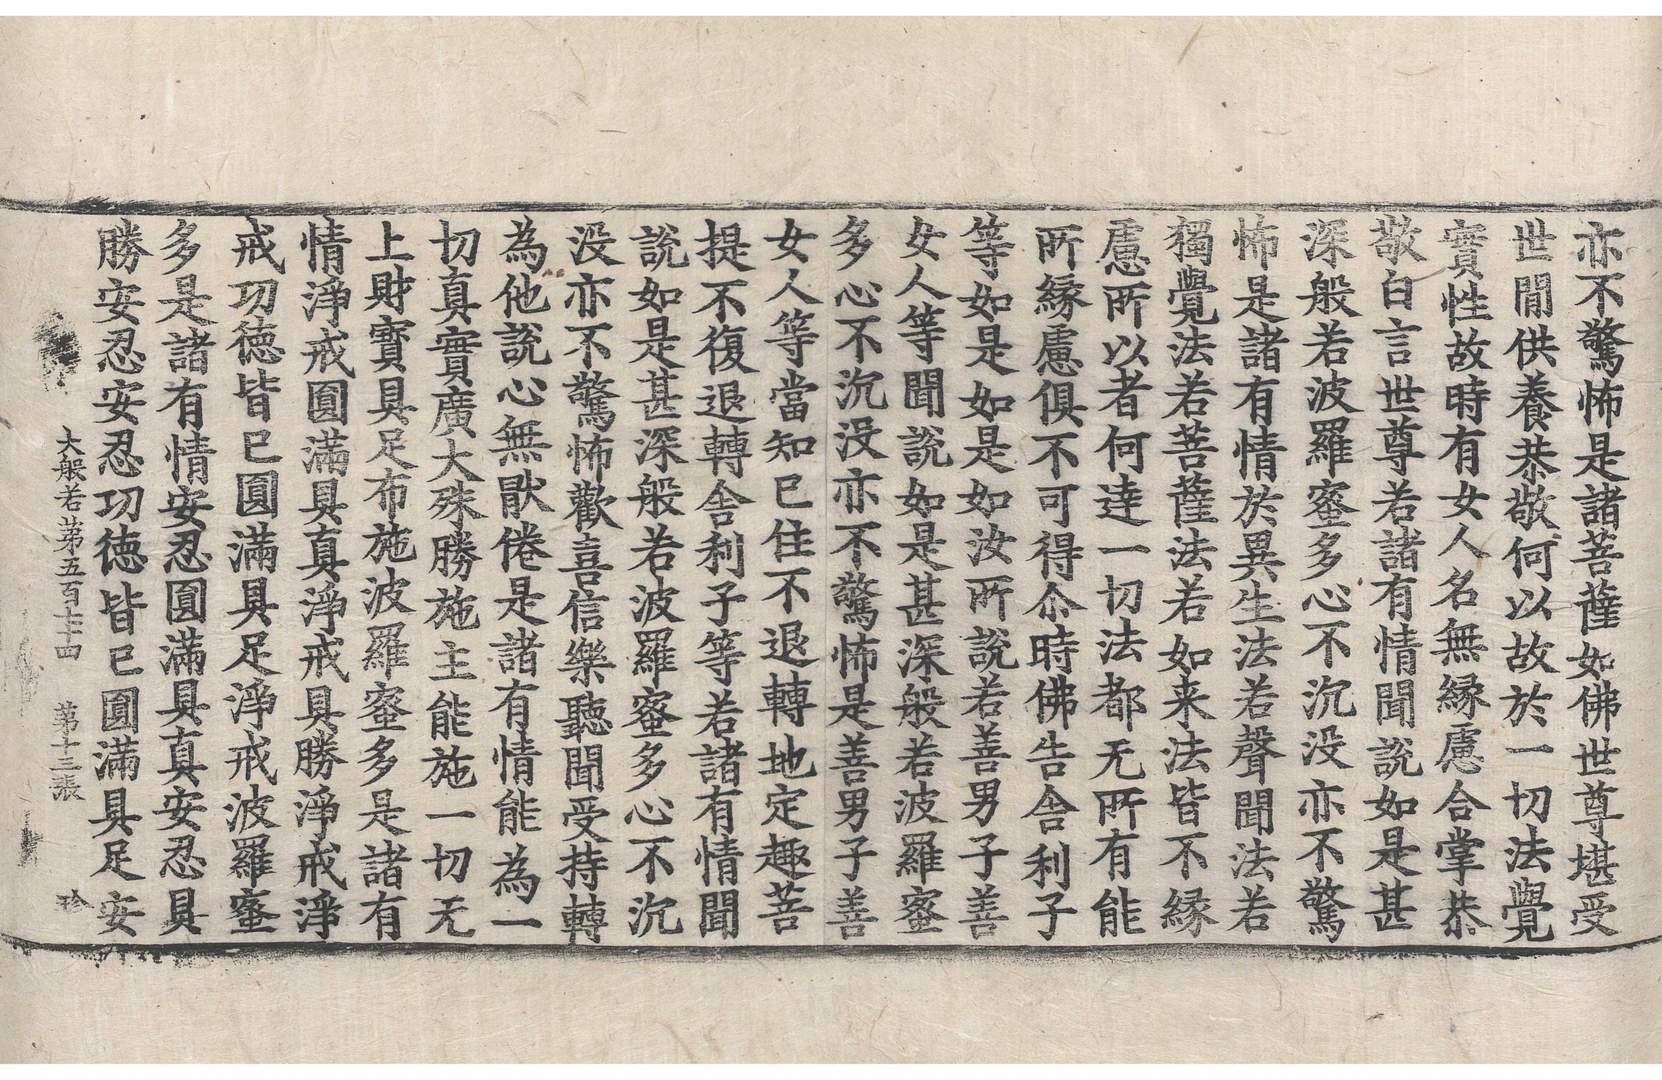 亦不驚怖是諸菩薩如佛世尊堪受
世間供養恭敬何以故於一切法覺
實性故時有女人名無緣慮合掌恭
敬白言世尊若諸有情聞說如是甚
深般若波羅蜜多心不沉没亦不驚
怖是諸有情於異生法若聲聞法若
獨覺法若菩薩法若如来法皆不緣
慮所以者何達一切法都无所有能
所緣慮俱不可得尒時佛告舍利子
等如是如是如汝所說若善男子善
女人等聞說如是甚深般若波羅蜜
多心不沉没亦不驚怖是善男子善
女人等當知已住不退轉地定趣菩
提不復退轉舍利子等若諸有情聞
說如是甚深般若波羅蜜多心不沉
没亦不驚怖歡喜信樂聽聞受持轉
為他說心無猒倦是諸有情能為一
切真實廣大殊勝施主能施一切无
上財寶具足布施波羅蜜多是諸有
情淨戒圓滿具真淨戒具勝淨戒淨
戒功德皆已圓滿具足淨戒波羅蜜
多是諸有情安忍圓滿具真安忍具
勝安忍安忍功德皆已圓滿具足安
大般若第五百七十四 第十三張 珍